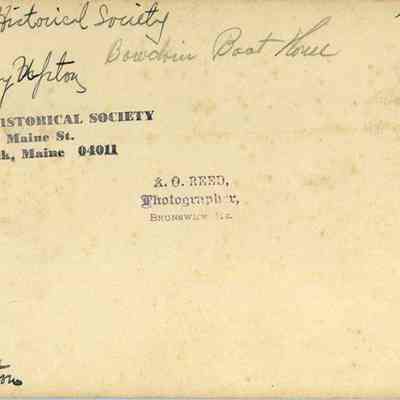 Historical Society
Bowdoin Boat House
y Upton
HISTORICAL SOCIETY
Maine St.
k, Maine 04011
A. O. REED,
Photographer,
BRUNSWICK ME.